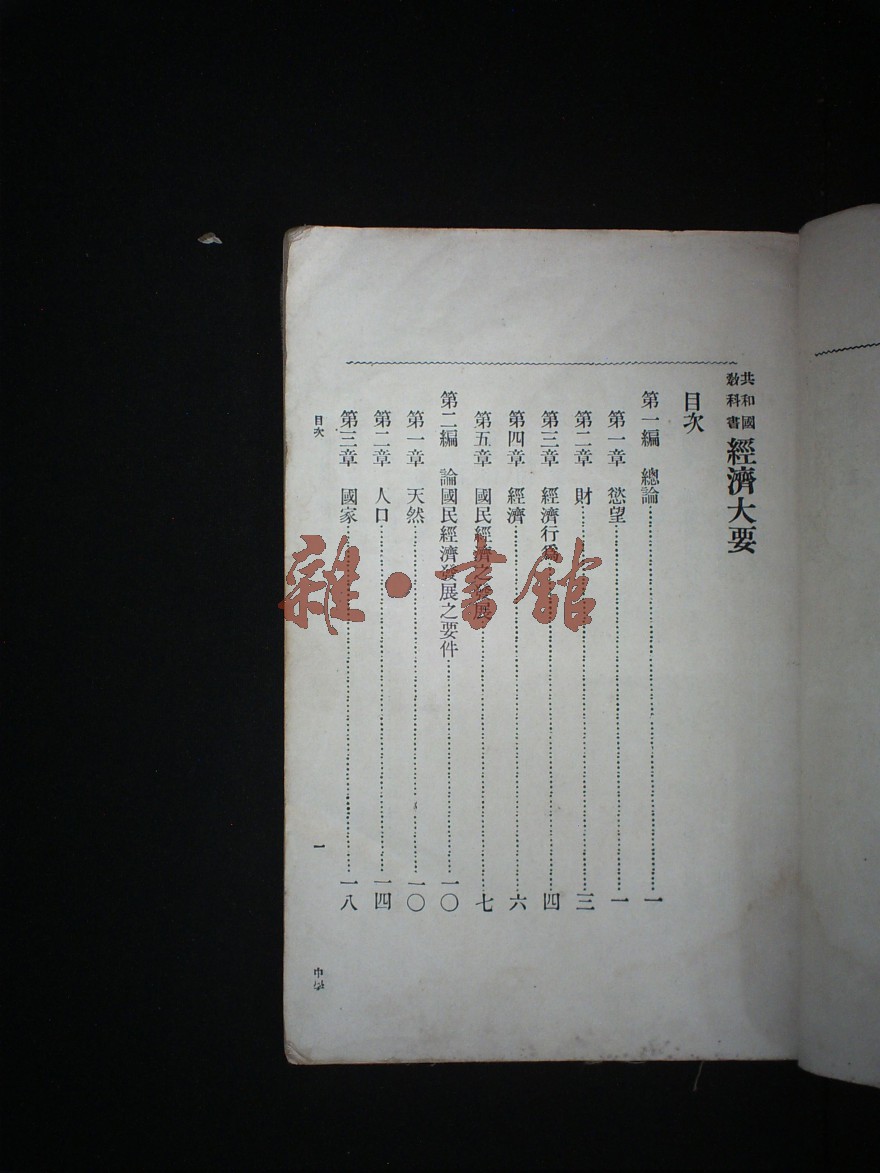 共和國
教科書
經濟大要
目次
第一編 總論……一
第一章 慾望……一
第二章 財……三
第三章 經濟行爲……四
第四章 經濟……六
第五章 國民經濟之發展……七
第二編 論國民經濟發展之要件……一〇
第一章 天然……一〇
第二章 人口……一四
第三章 國家……一八
目次 一 中學
雜·書館